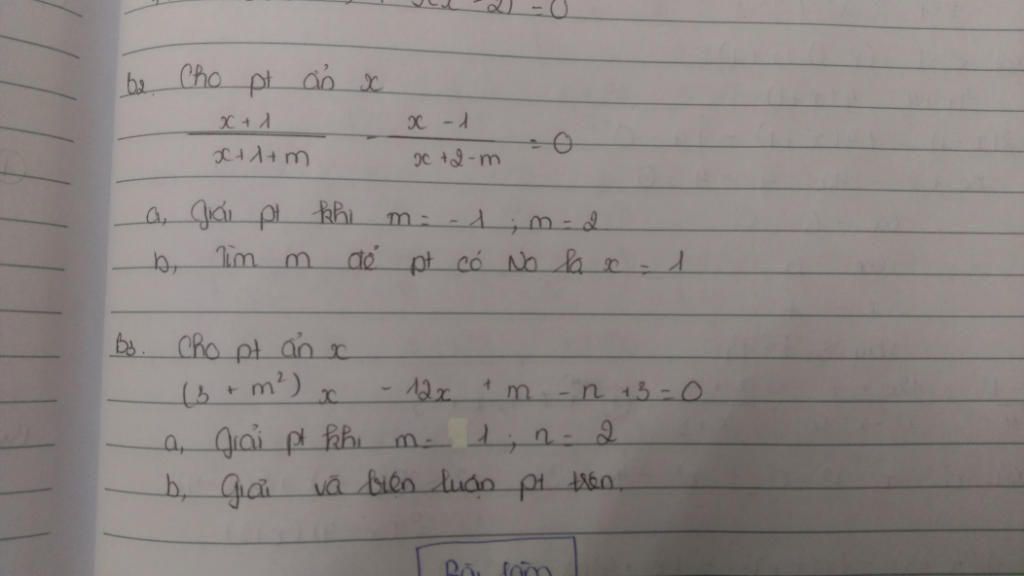 x(x-2) = 0
b2. Cho pt ẩn x
\frac{x+1}{x+1+m} - \frac{x-1}{x+2-m} = 0
a, giải pt khi m = -1 ; m = 2
b, Tìm m để pt có No là x = 1
b3. Cho pt ẩn x
(3 + m²) x - 12x + m - n + 3 = 0
a, giải pt khi m = 1 ; n = 2
b, Giải và biện luận pt trên.
Bài làm